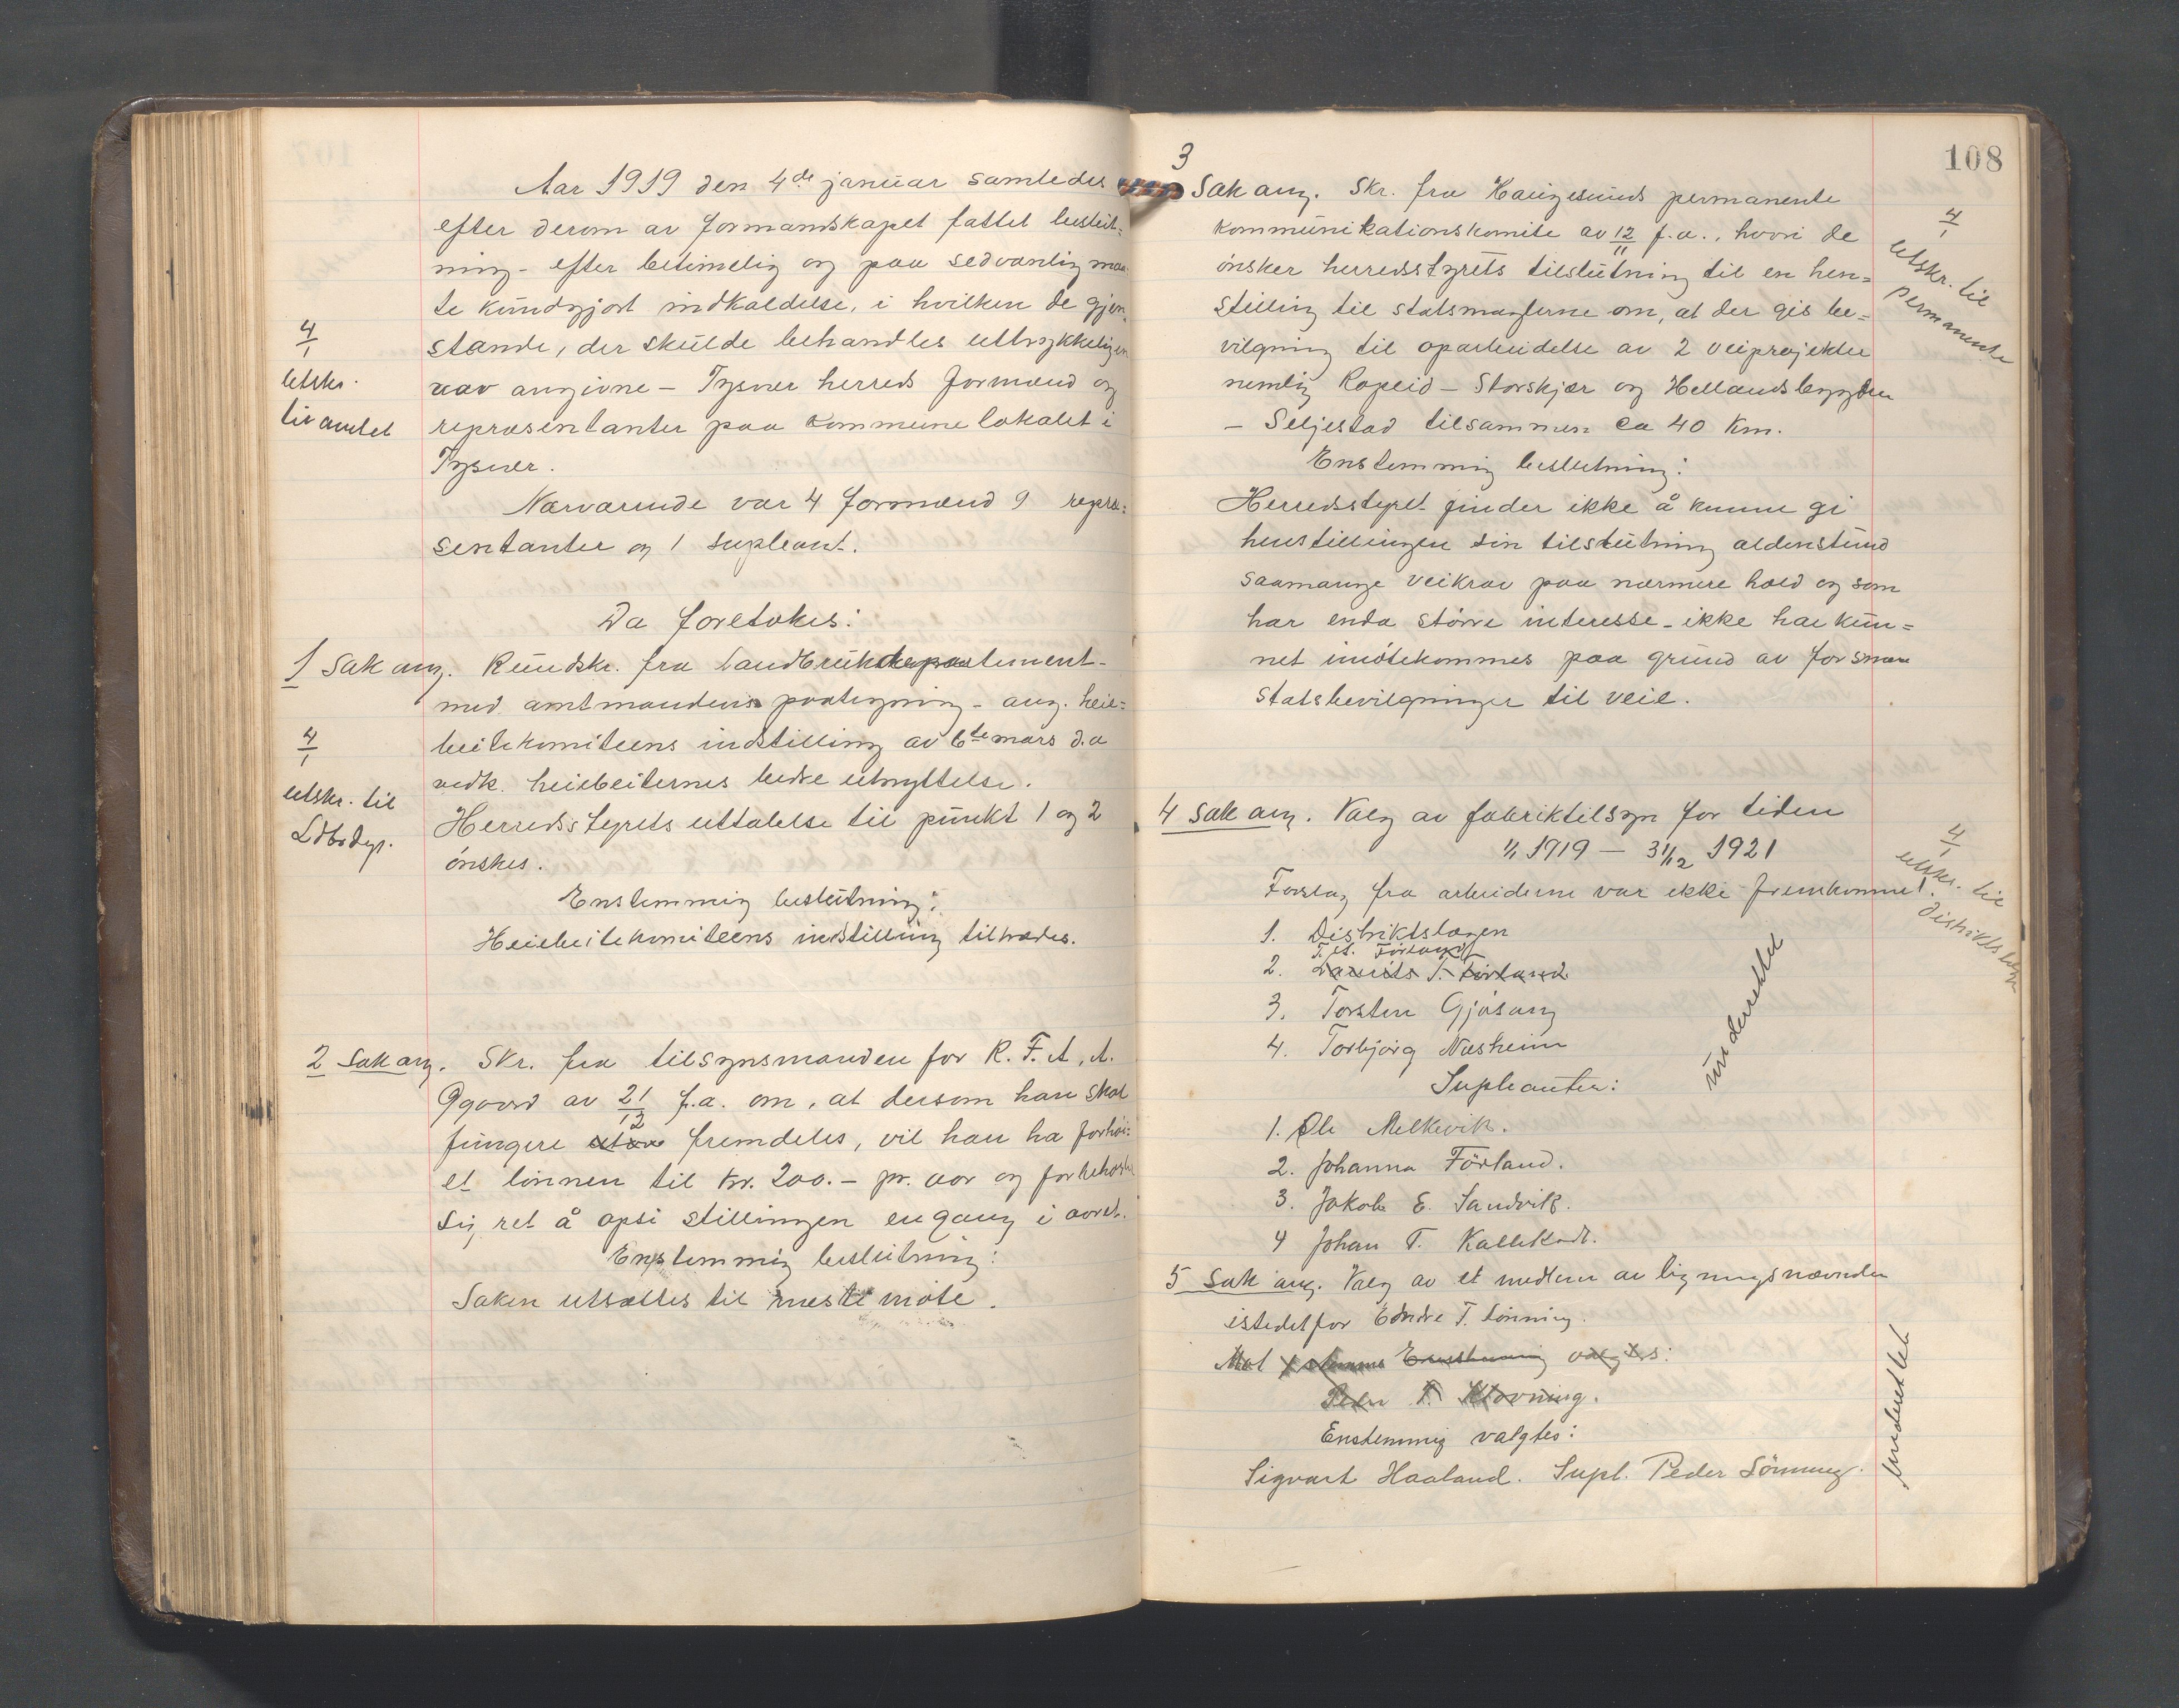 Aar 1919 den 4de januar samledes
efter derom av formandskapet fattet beslut-
ning - efter betimelig og paa sedvanlig maa-
te kundgjort indkaldelse, i hvilken de gjen-
stande, der skulde behandles uttrykkeligen
var angivne - Tysvær herreds formænd og
repræsentanter paa kommunelokalet i
Tysvær.
4/1
utskr.
til amtet
Nærværende var 4 formænd 9 repræ=
sentanter og 1 supleant.
Da foretokes:
1 Sak ang. Rundskr. fra Landbruksdepartement-
med amtmandens paategning - ang. heie=
beitekomiteens indstilling av 6te mars d.a
vedk. heiebeiternes bedre utnyttelse.
Herredsstyrets uttalelse til punkt 1 og 2
ønskes.
4/1
utskr. til
Ldbrdep.
Enstemmig beslutning:
Heiebeitekomiteens indstilling tiltrædes.
2 Sak ang. Skr. fra tilsynsmanden for R.F.A, A.
Øgaard av 21/12 f.a. om, at dersom han skal
fungere fremdeles, vil han ha forhøi=
et lønnen til kr. 200.- pr. aar og forbeholde
sig ret å opsi stillingen engang i aaret.
Enstemmig beslutning:
Saken utsættes til næste møte.
108
3
Sak ang. Skr. fra Haugesunds permanente
kommunikationskomite av 12/11 f.a., hvori de
ønsker herredsstyrets tilslutning til en hen=
stilling til statsmagterne om, at der gis be=
vilgning til oparbeidelse av 2 veiprojekter
nemlig Ropeid - Storskjær og Hellandsbygden
- Seljestad tilsammen ca 40 km.
4/1
utskr. til
permanente
Enstemmig beslutning:
Herredsstyret finder ikke å kunne gi
henstillingen sin tilslutning aldenstund
saamange veikrav paa nærmere hold og som
har enda større interesse - ikke har kun=
net imøtekommes paa grund av for smaa
statsbevilgninger til veie.
4 Sak ang. Valg av fabriktilsyn for tiden
1/1 1919 - 31/12 1921
Forslag fra arbeiderne var ikke fremkommet.
4/1
utskr. til
distriktslægen
1. Distriktslægen
T. A. Førland
2. Daniels T. Førland
3. Torsten Gjøsang
4. Torbjørg Næsheim
underrettet
Supleanter:
1. Ole Melkevik.
2. Johanna Førland.
3. Jakob E. Sandvik.
4 Johan T. Kallekodt.
5 Sak ang. Valg av et medlem av ligningsnævnden
istedetfor Endre T. Lønning.
Mot 1 stemme Enstemmig valgtes:
Peder T. Klovning.
Enstemmig valgtes:
Sigvart Haaland. Supl. Peder Lønning.
Underrettet